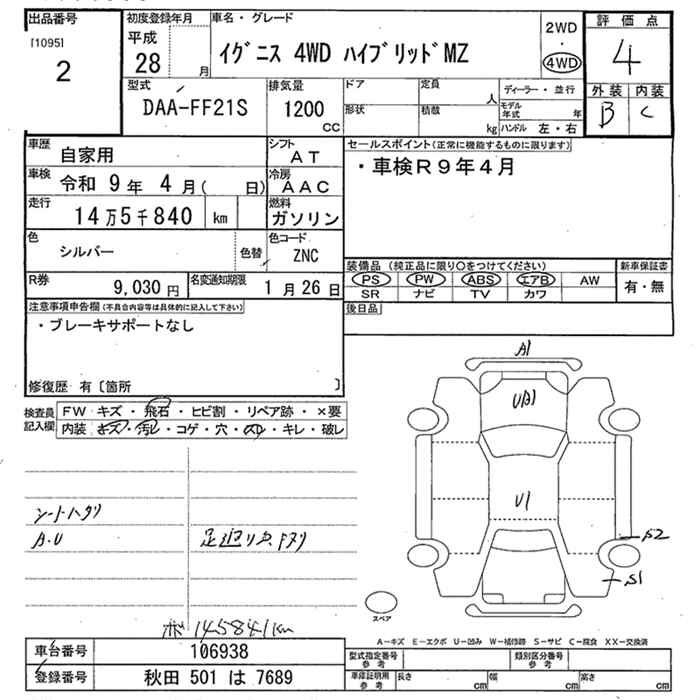 出品番号
[1095]
2
初度登録年月
平成
28 月
車名・グレード
イグニス 4WD ハイブリッドMZ
2WD
・
4WD
評価点
4
外装 内装
B C
型式
DAA-FF21S
排気量
1200
CC
ドア
形状
定員
人
積載
kg
ディーラー・並行
モデル年式 年
ハンドル 左・右
車歴
自家用
シフト
AT
車検
令和 9年 4月( 日)
冷房
AAC
走行
14万5千840 km
燃料
ガソリン
色
シルバー
色替
色コード
ZNC
R券
9,030 円
名変通知期限
1月26日
セールスポイント(正常に機能するものに限ります)
・車検R9年4月
装備品 (純正品に限り○をつけてください)
PS PW ABS エアB AW
SR ナビ TV カワ
新車保証書
有・無
後日品
注意事項申告欄(不具合内容等は具体的に記入して下さい)
・ブレーキサポートなし
修復歴 有〔箇所 〕
検査員記入欄
FW キズ・飛石・ヒビ割・リペア跡・×要
内装 キズ・汚レ・コゲ・穴・
・キレ・破レ
A1
UA1
U1
S2
S1
スペア
シートハゲリ
A.U
足廻り
14584.1km
A-キズ E-エクボ U-凹み W-補修跡 S-サビ C-腐食 XX-交換済
車台番号
106938
登録番号
秋田 501 は 7689
型式指定番号
参考
類別区分番号
参考
車庫証明用
参考
長さ cm 幅 cm 高さ cm